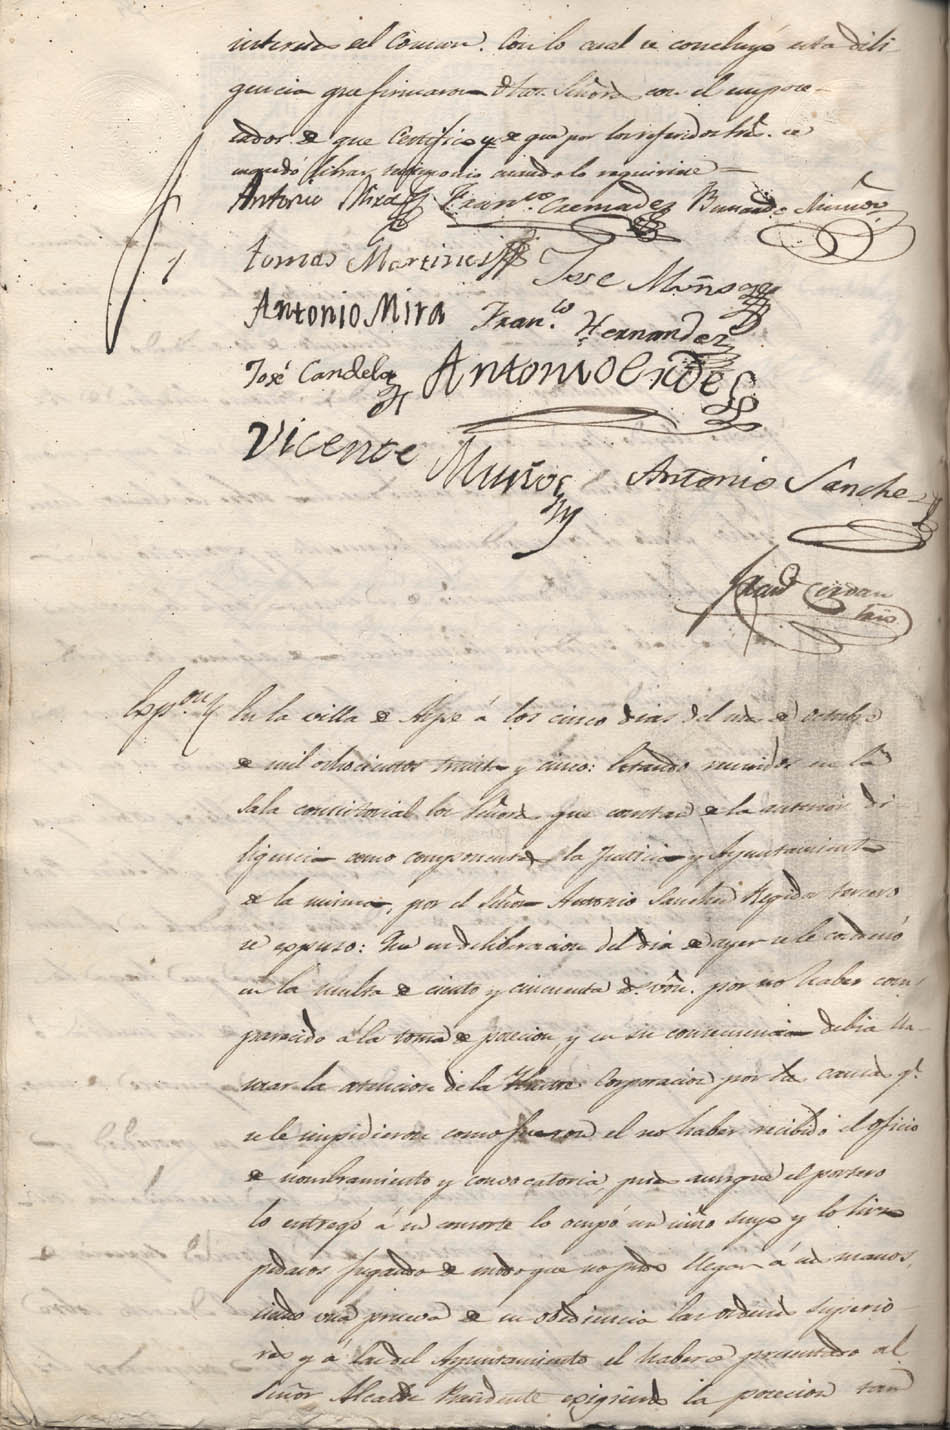 interes del Comun. Con lo cual se concluyó esta dili
gencia que firmaron dhos. Señores con el
de que Certifico y de que por los referidos Sres. se
mandó librar testimonio
Antonio Mira Franco. Cremades Bernardo Muñoz
tomas Martines Jose Muños
Antonio Mira Franco. Hernandez
José Candela Antonio
Vicente Muños Antonio Sanche
Cerdan
Srio
Expon. En la villa de Aspe á los cinco dias del mes de Octubre
de mil ochocientos treinta y cinco: Estando reunidos en la
Sala consistorial los Señores que constan de la anterior di
ligencia como componentes la Justicia y Ayuntamiento
de la misma, por el Señor Antonio Sanchez Regidor tercero
se expuso: Que en deliberacion del dia de ayer se le condenó
en la multa de ciento y cincuenta rs. von. por no haber com
parecido á la toma de posecion, y en su consecuencia debia lla
mar la atencion de la Corporacion por las causas q.
se le impidieron como fueron el no haber recibido el oficio
de nombramiento y convocatoria, pues aunque el portero
lo entregó á su consorte lo ocupó un niño suyo y lo hizo
pedasos jugando de modo que no pudo llegar á sus manos,
siendo una prueva de su obediencia las ordenes superio
res y á las del Ayuntamiento el haberse presentado al
Señor Alcalde Presidente exigiendo la posecion tan